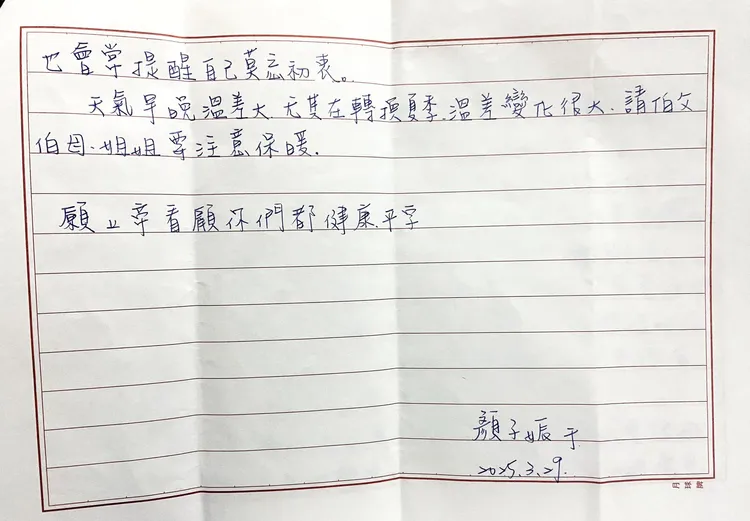 也會常提醒自己莫忘初衷。
天氣早晚溫差大.尤其在轉換夏季.溫差變化很大.請伯父
伯母.姐姐要注意保暖.
願上帝看顧你們都健康.平安
顏子娠于
2025.3.29.